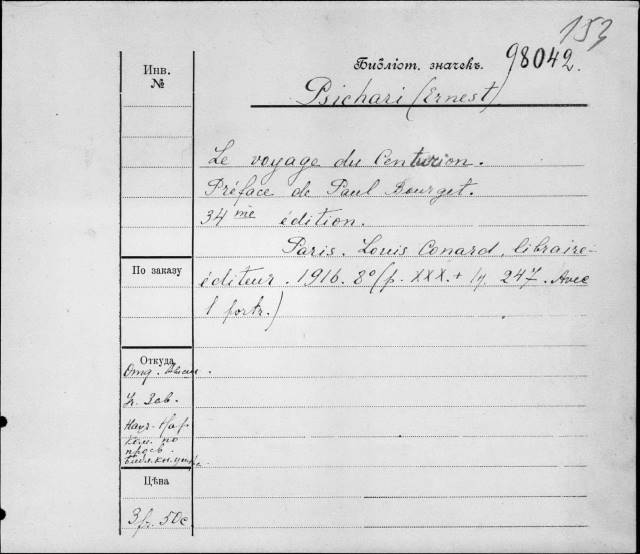 153
Инв.
№
Библіот. значекъ. 98042.
Psichari (Ernest)
Le voyage du Centurion.
Préface de Paul Bourget.
34me édition.
Paris. Louis Conard, libraire-
éditeur. 1916. 8° (p. XXX. + 247. Avec
1 portr.)
По заказу
Откуда
Отд.
Зав.
Ком. по
Цѣна
3 fr. 50c.